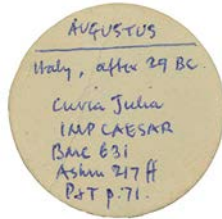 AUGUSTUS
Italy, after 29 BC.
Curia Julia
IMP CAESAR
BMC 631
Ashm 217 ff
P&T p.71.